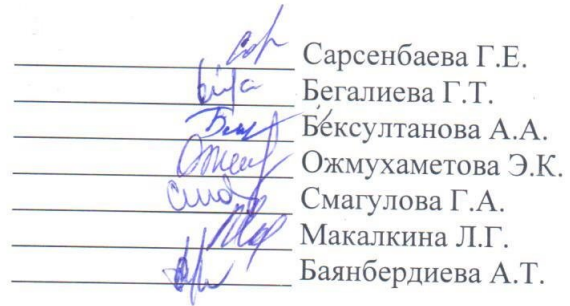 Сарсенбаева Г.Е.
Бегалиева Г.Т.
Бексултанова А.А.
Ожмухаметова Э.К.
Смагулова Г.А.
Макалкина Л.Г.
Баянбердиева А.Т.